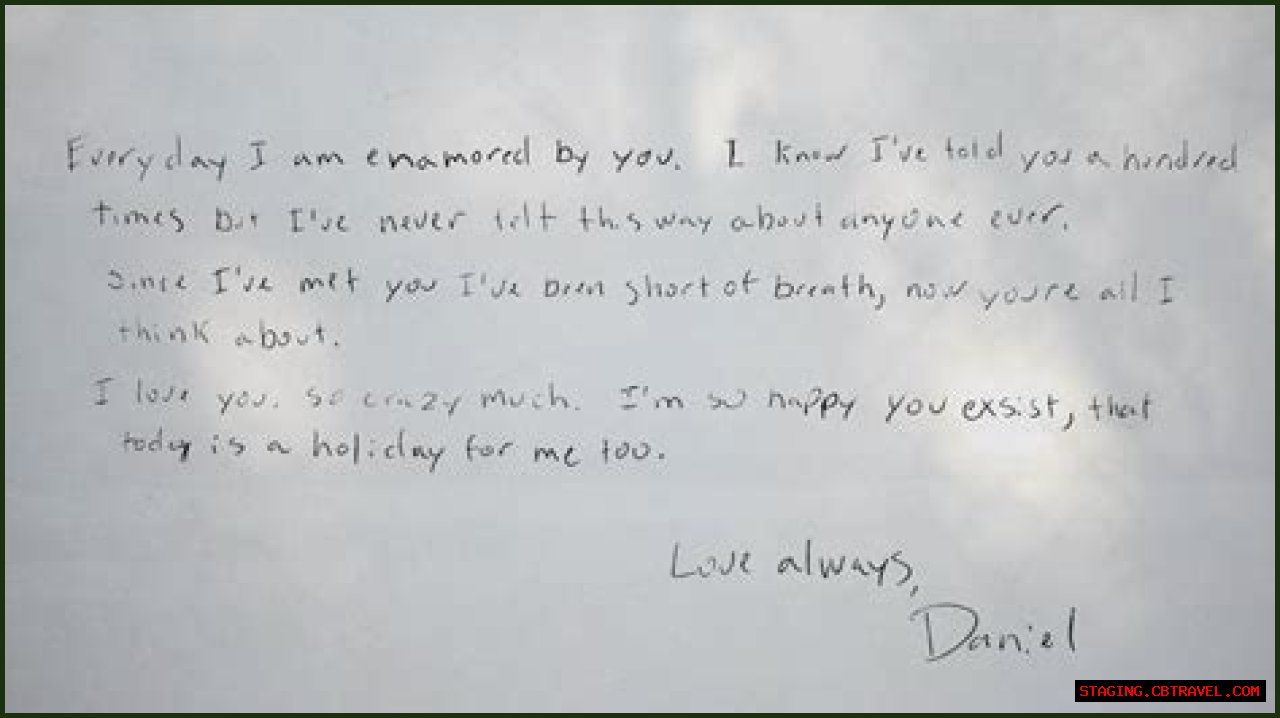 Every day I am enamored by you. I know I've told you a hundred
times but I've never felt this way about anyone ever.
Since I've met you I've been short of breath, now youre all I
think about.
I love you. so crazy much. I'm so happy you exsist, that
today is a holiday for me too.
Love always,
Daniel
STAGING.CBTRAVEL.COM